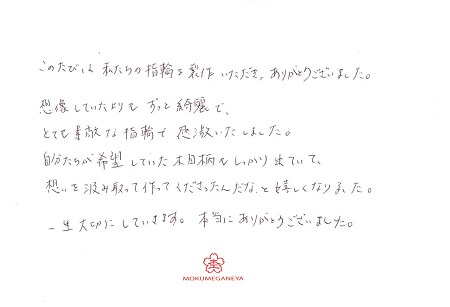 このたびは 私たちの指輪を製作いただき、ありがとうございました。
想像していたよりも ずっと綺麗で、
とても素敵な指輪で 感激いたしました。
自分たちが希望していた木目柄もしっかり出ていて、
想いを汲み取って作ってくださったんだな、と嬉しくなりました。
一生大切にしていきます。 本当にありがとうございました。
MOKUMEGANEYA